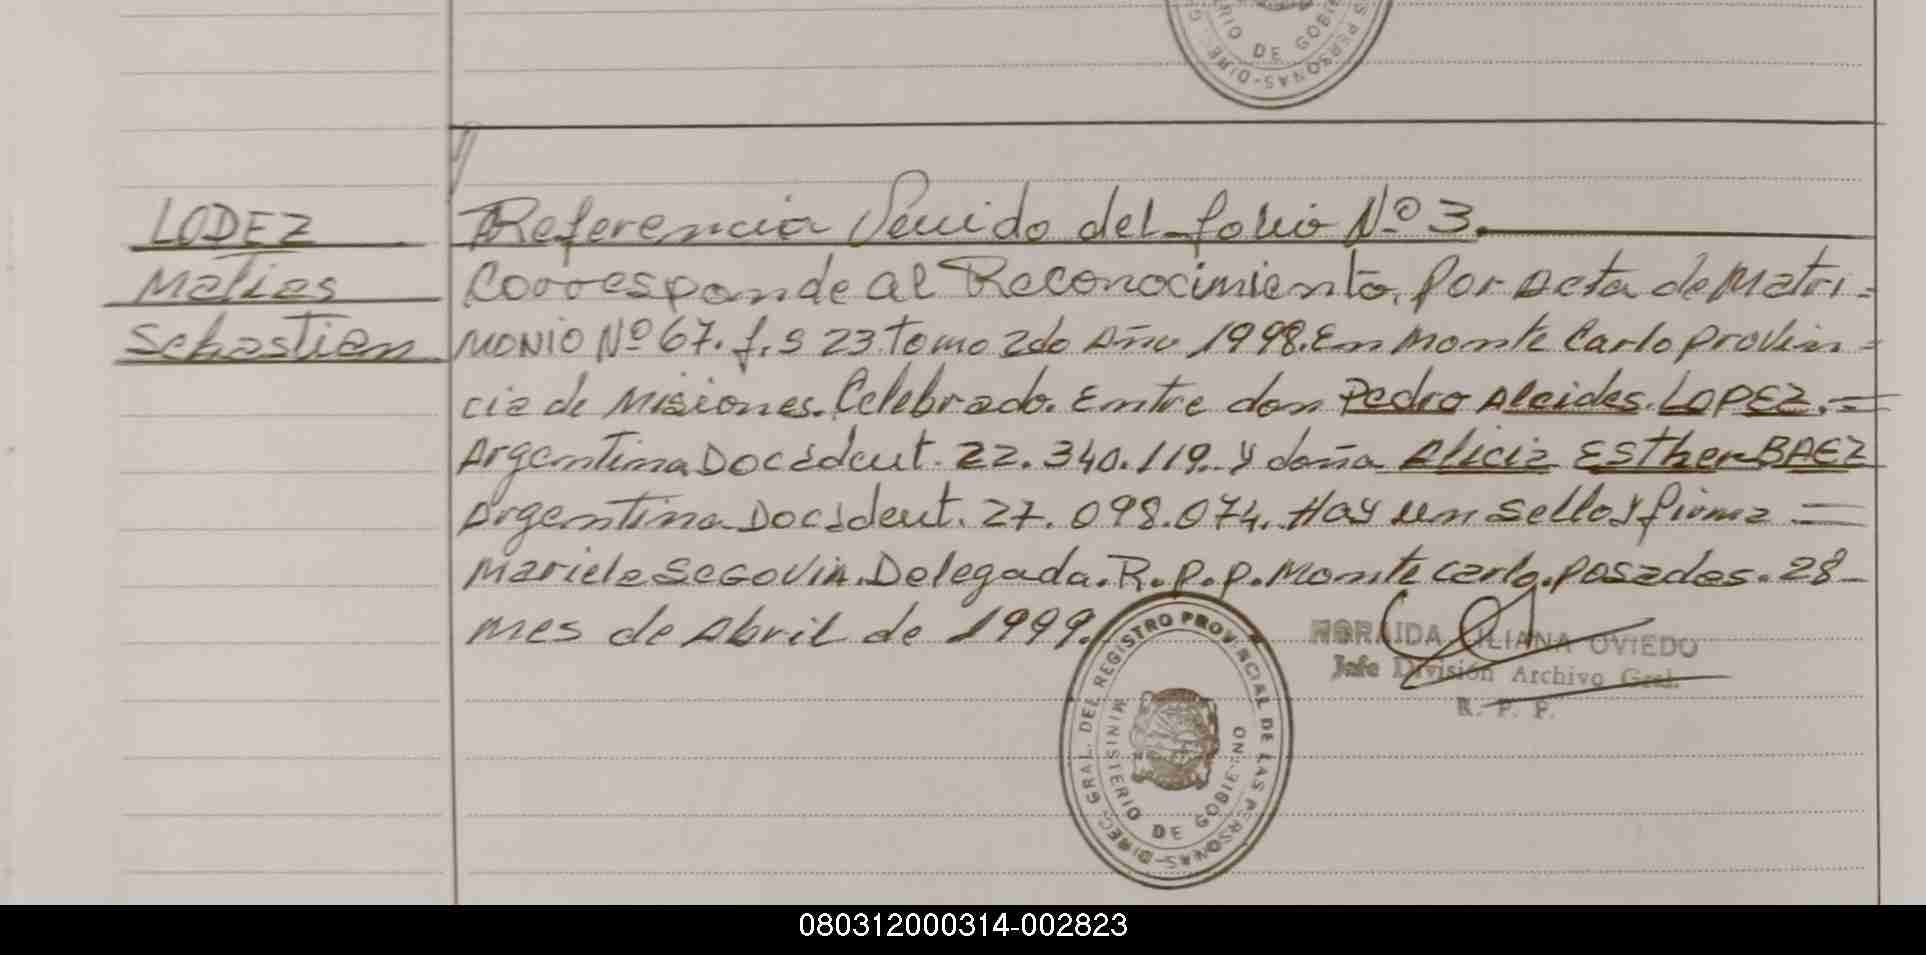 LOPEZ
Matias
Sebastian
Referencia Venido del folio Nº 3.
Corresponde al Reconocimiento, por acta de Matri=
MONIO Nº 67. f.s 23. tomo 2do Año 1998. En Monte Carlo provin=
cia de Misiones. Celebrado. Entre don Pedro Alcides. LOPEZ.=
Argentina Doc ident. 22.340.119. y doña Alicia ESther BAEZ
Argentina Doc ident. 27.098.074. Hay un sello y firma =
Mariela SEGOVIA. Delegada. R.p.p. Monte carlo. posadas. 28
mes de Abril de 1999.
NORAIDA LILIANA OVIEDO
Jefe División Archivo Gral.
R. P. P.
DIREC. GRAL. DEL REGISTRO PROVINCIAL DE LAS PERSONAS
MINISTERIO DE GOBIERNO
080312000314-002823